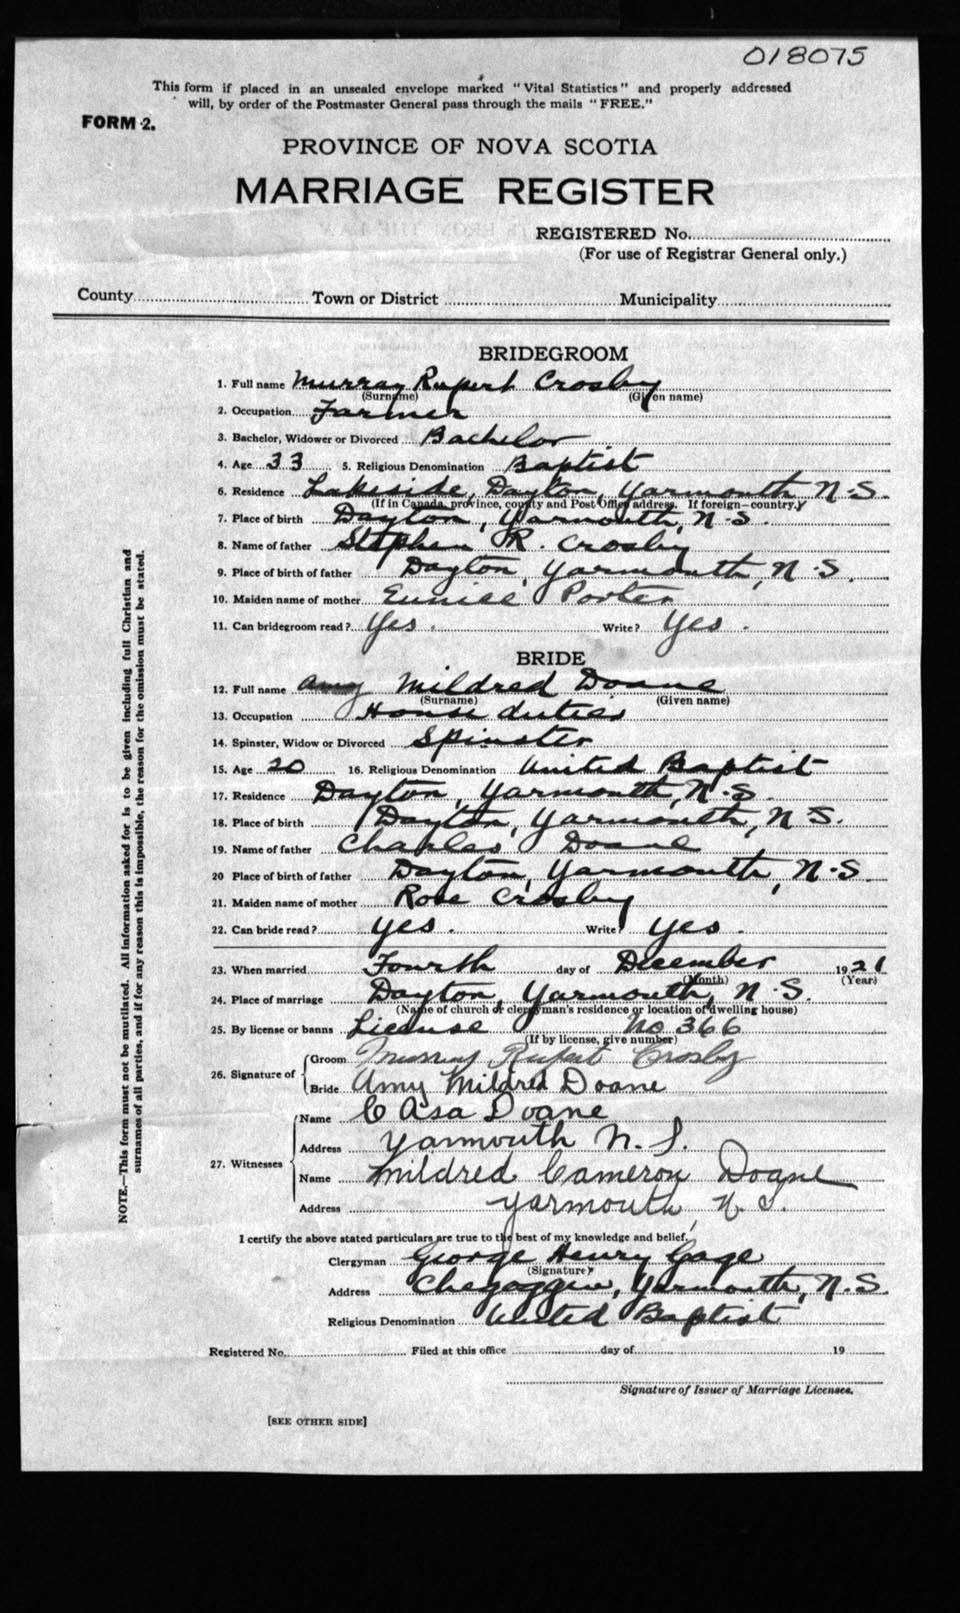 018075
This form if placed in an unsealed envelope marked "Vital Statistics" and properly addressed
will, by order of the Postmaster General pass through the mails "FREE."
FORM 2.
PROVINCE OF NOVA SCOTIA
MARRIAGE REGISTER
REGISTERED No.
(For use of Registrar General only.)
County Town or District Municipality
BRIDEGROOM
1. Full name Murray Rupert Crosby
(Surname) (Given name)
2. Occupation Farmer
3. Bachelor, Widower or Divorced Bachelor
4. Age 33 5. Religious Denomination Baptist
6. Residence Lakeside, Dayton, Yarmouth N.S.
(If in Canada, province, county and Post Office address. If foreign—country.)
7. Place of birth Dayton, Yarmouth, N.S.
8. Name of father Stephen R. Crosby
9. Place of birth of father Dayton, Yarmouth, N.S.
10. Maiden name of mother Eunice Porter
11. Can bridegroom read? Yes. Write? Yes.
BRIDE
12. Full name Amy Mildred Doane
(Surname) (Given name)
13. Occupation House duties
14. Spinster, Widow or Divorced Spinster
15. Age 20 16. Religious Denomination United Baptist
17. Residence Dayton, Yarmouth, N.S.
18. Place of birth Dayton, Yarmouth, N.S.
19. Name of father Charles Doane
20 Place of birth of father Dayton, Yarmouth, N.S.
21. Maiden name of mother Rose Crosby
22. Can bride read? Yes. Write? Yes.
23. When married Fourth day of December 1921
(Month) (Year)
24. Place of marriage Dayton, Yarmouth, N.S.
(Name of church or clergyman's residence or location of dwelling house)
25. By license or banns License No 366
(If by license, give number)
26. Signature of Groom Murray Rupert Crosby
Bride Amy Mildred Doane
27. Witnesses Name C Asa Doane
Address Yarmouth N.S.
Name Mildred Cameron Doane
Address Yarmouth, N.S.
I certify the above stated particulars are true to the best of my knowledge and belief,
Clergyman George Henry Gage
(Signature)
Address Chegoggin, Yarmouth, N.S.
Religious Denomination United Baptist
Registered No. Filed at this office day of 19
Signature of Issuer of Marriage Licenses.
[SEE OTHER SIDE]
NOTE.—This form must not be mutilated. All information asked for is to be given including full Christian and
surnames of all parties, and if for any reason this is impossible, the reason for the omission must be stated.